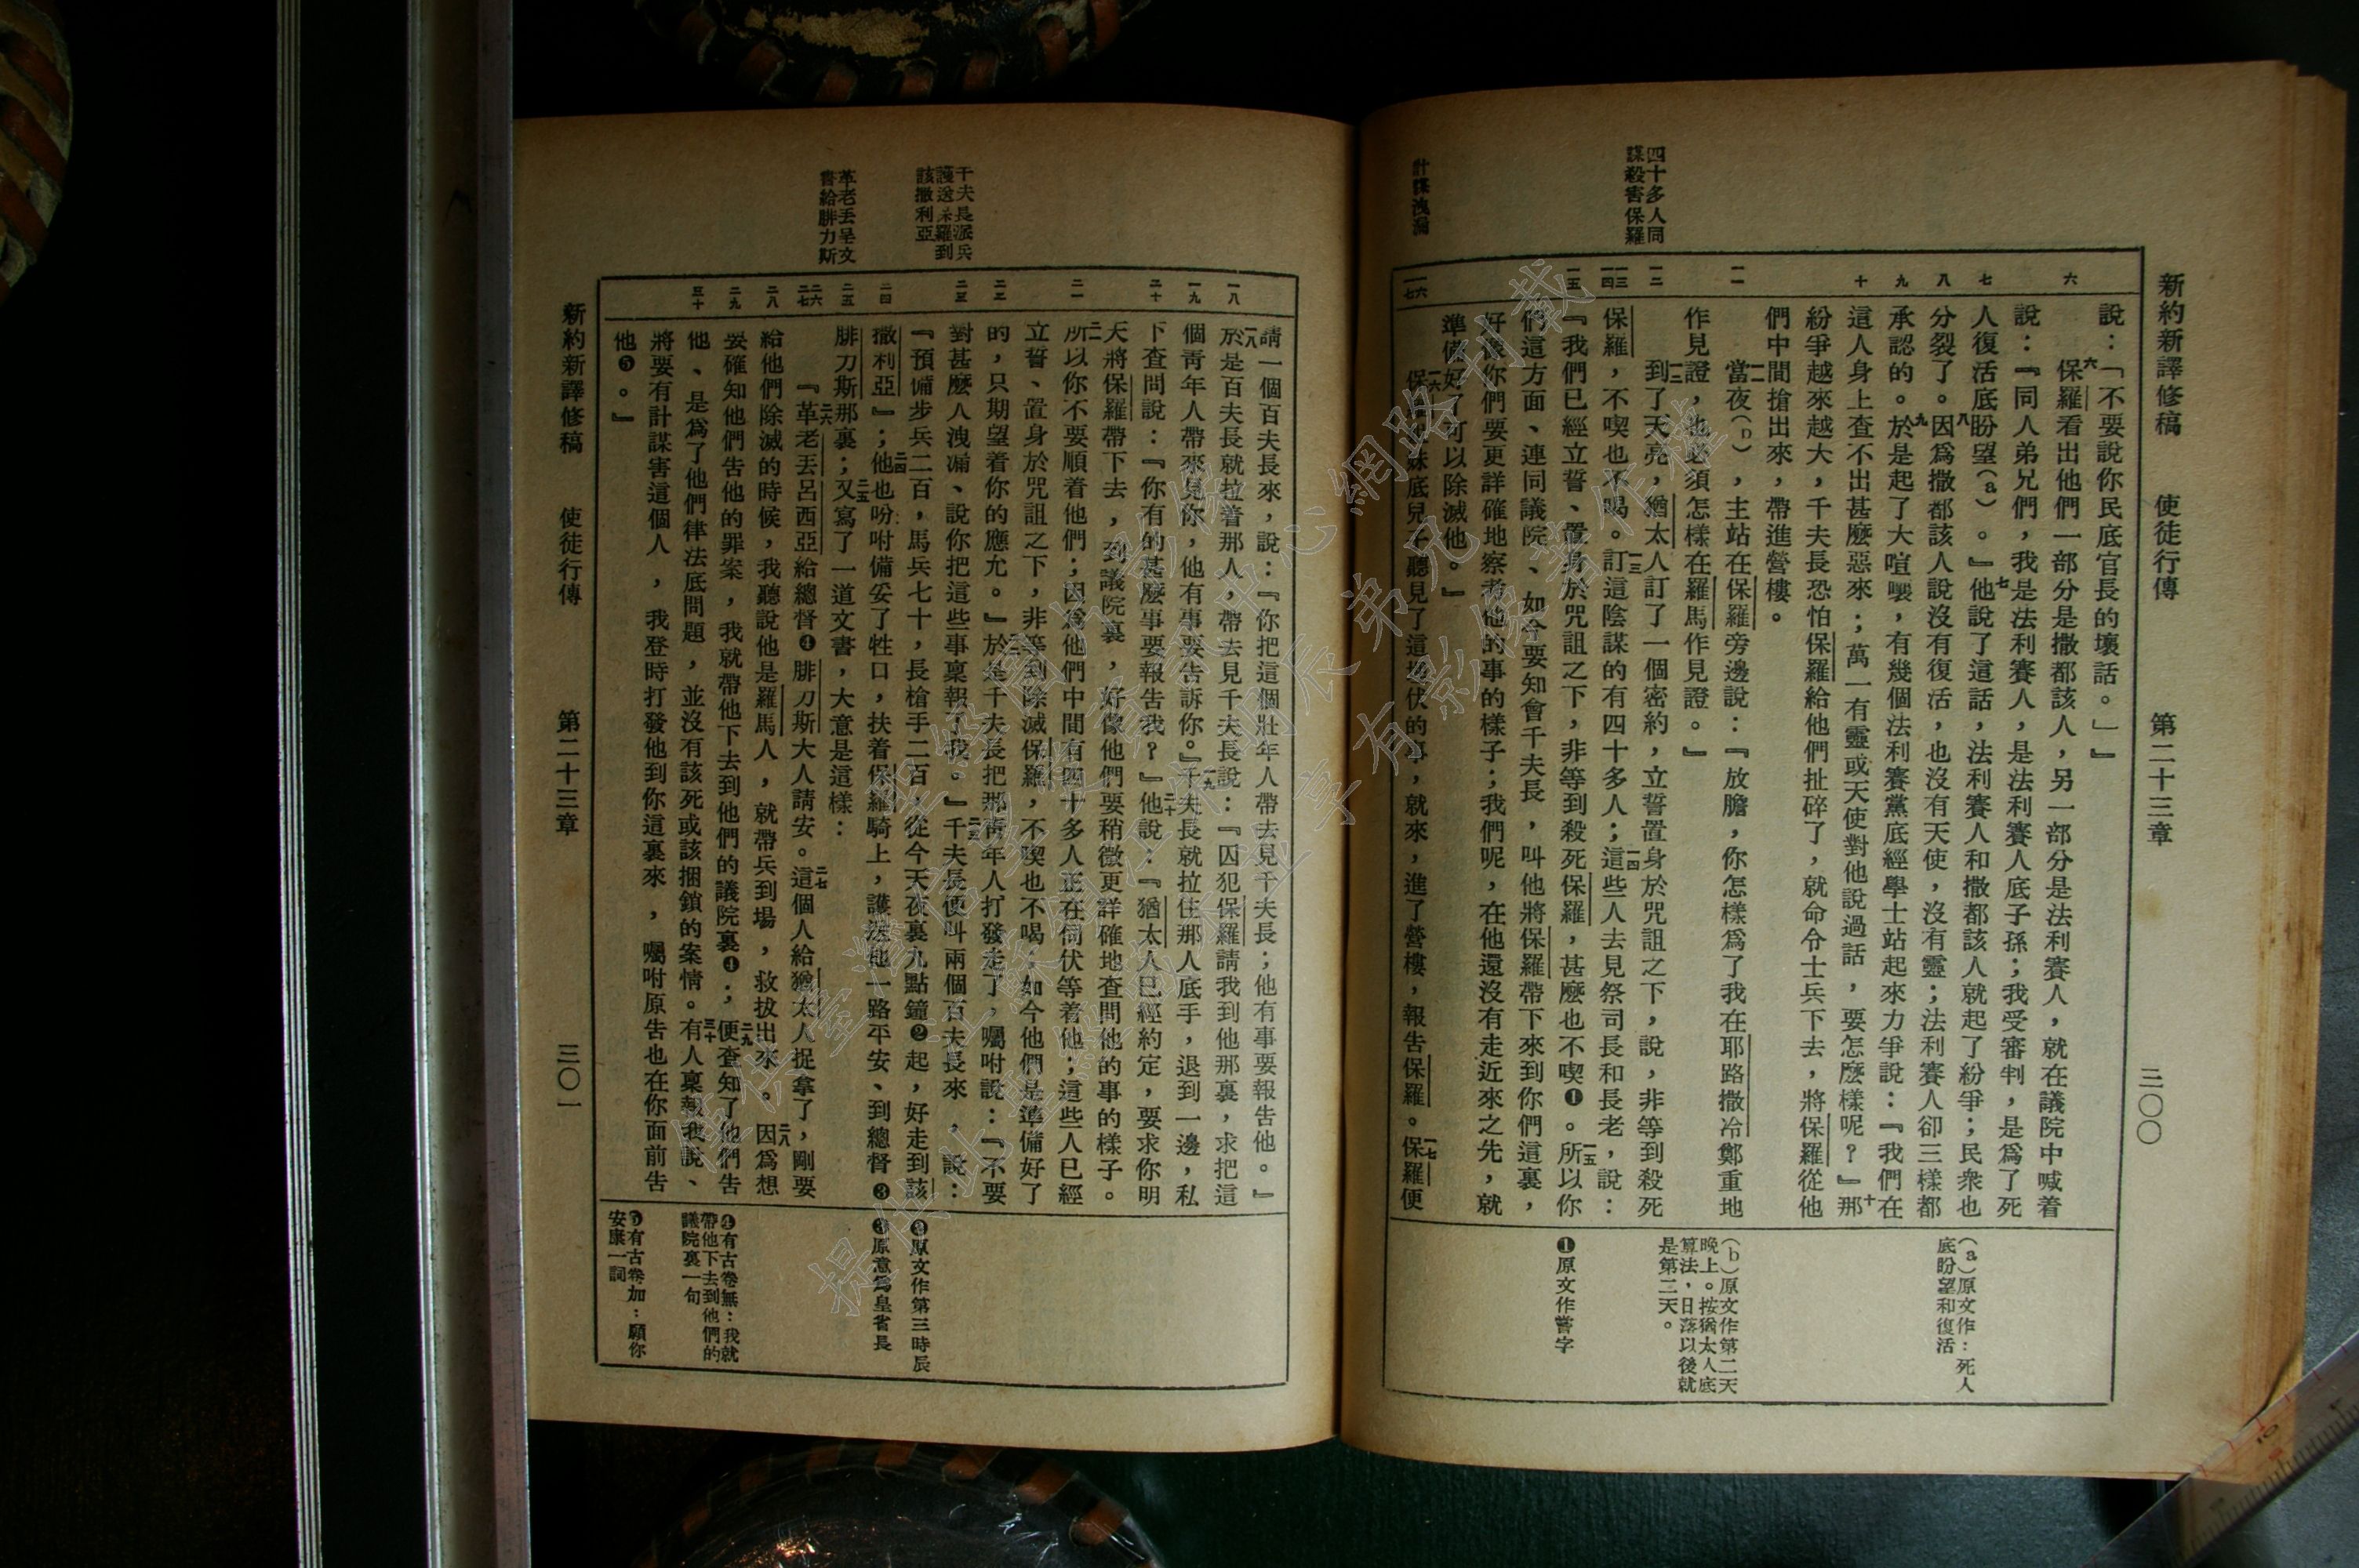 新約新譯修稿　使徒行傳　第二十三章　三〇〇
四十多人同
謀殺害保羅
計謀洩漏
六
七
八
九
十
一一
一二
一三
一四
一五
一六
一七
說：「不要說你民底官長的壞話。」』
六保羅看出他們一部分是撒都該人，另一部分是法利賽人，就在議院中喊着
說：『同人弟兄們，我是法利賽人，是法利賽人底子孫；我受審判，是爲了死
人復活底盼望(a)。』七他說了這話，法利賽人和撒都該人就起了紛爭；民衆也
分裂了。八因爲撒都該人說沒有復活，也沒有天使，沒有靈；法利賽人卻三樣都
承認的。九於是起了大喧嚷，有幾個法利賽黨底經學士站起來力爭說：『我們在
這人身上查不出甚麼惡來；萬一有靈或天使對他說過話，要怎麼樣呢？』十那
紛爭越來越大，千夫長恐怕保羅給他們扯碎了，就命令士兵下去，將保羅從他
們中間搶出來，帶進營樓。
一一當夜(b)，主站在保羅旁邊說：『放膽，你怎樣爲了我在耶路撒冷鄭重地
作見證，也必須怎樣在羅馬作見證。』
一二到了天亮，猶太人訂了一個密約，立誓置身於咒詛之下，說，非等到殺死
保羅，不喫也不喝。一三訂這陰謀的有四十多人；一四這些人去見祭司長和長老，說：
『我們已經立誓、置身於咒詛之下，非等到殺死保羅，甚麼也不喫❶。一五所以你
們這方面、連同議院、如今要知會千夫長，叫他將保羅帶下來到你們這裏，
好像你們要更詳確地察考他的事的樣子；我們呢，在他還沒有走近來之先，就
準備好了可以除滅他。』
一六保羅姊妹底兒子聽見了這埋伏的事，就來，進了營樓，報告保羅。一七保羅便
(a)原文作：死人
底盼望和復活
(b)原文作第二天
晚上。按猶太人底
算法，日落以後就
是第二天。
❶原文作嘗字
新約新譯修稿　使徒行傳　第二十三章　三〇一
千夫長派兵
護送保羅到
該撒利亞
革老丟呈文
書給腓力斯
一八
一九
二十
二一
二二
二三
二四
二五
二六
二七
二八
二九
三十
請一個百夫長來，說：『你把這個壯年人帶去見千夫長；他有事要報告他。』
一八於是百夫長就拉着那人，帶去見千夫長說：『囚犯保羅請我到他那裏，求把這
個靑年人帶來見你，他有事要告訴你。』一九千夫長就拉住那人底手，退到一邊，私
下查問說：『你有的甚麼事要報告我？』二十他說：『猶太人已經約定，要求你明
天將保羅帶下去，到議院裏，好像他們要稍微更詳確地查問他的事的樣子。
二一所以你不要順着他們；因爲他們中間有四十多人正在伺伏等着他；這些人已經
立誓、置身於咒詛之下，非等到除滅保羅，不喫也不喝；如今他們是準備好了
的，只期望着你的應允。』二二於是千夫長把那靑年人打發走了，囑咐說：『不要
對甚麼人洩漏、說你把這些事稟報了我。』二三千夫長便叫兩個百夫長來，說：
『預備步兵二百，馬兵七十，長槍手二百，從今天夜裏九點鐘❷起，好走到該
撒利亞』；二四他也吩咐備妥了牲口，扶着保羅騎上，護送他一路平安、到總督❸
腓力斯那裏；二五又寫了一道文書，大意是這樣：
二六『革老丟呂西亞給總督❹腓力斯大人請安。二七這個人給猶太人捉拿了，剛要
給他們除滅的時候，我聽說他是羅馬人，就帶兵到場，救拔出來。二八因爲想
要確知他們告他的罪案，我就帶他下去到他們的議院裏❹；二九便查知了他們告
他、是爲了他們律法底問題，並沒有該死或該捆鎖的案情。三十有人稟報我說、
將要有計謀害這個人，我登時打發他到你這裏來，囑咐原告也在你面前告
他❺。』
❷原文作第三時辰
❸原意爲皇省長
❹有古卷無：我就
帶他下去到他們的
議院裏一句
❺有古卷加：願你
安康一詞